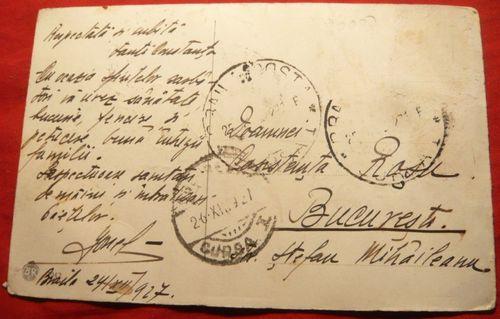 Respectată și iubită
tanti Constanța
Cu ocazia sfintelor sărbă-
tori vă urez sănătate
bucurie, fericire și
petrecere bună întregii
familii.
Respectuoase sărutări
de mâini și îmbrățișări
Josef
Braila 24/XII/927.
Doamnei
Constanța Rosu
București.
Ștefan Mihăileanu
POSTA
26.XII.927
CURSA I